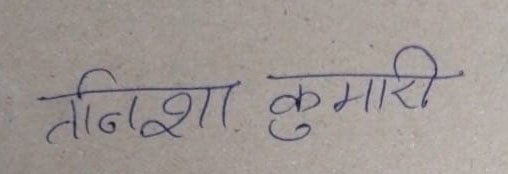 तनिशा कुमारी